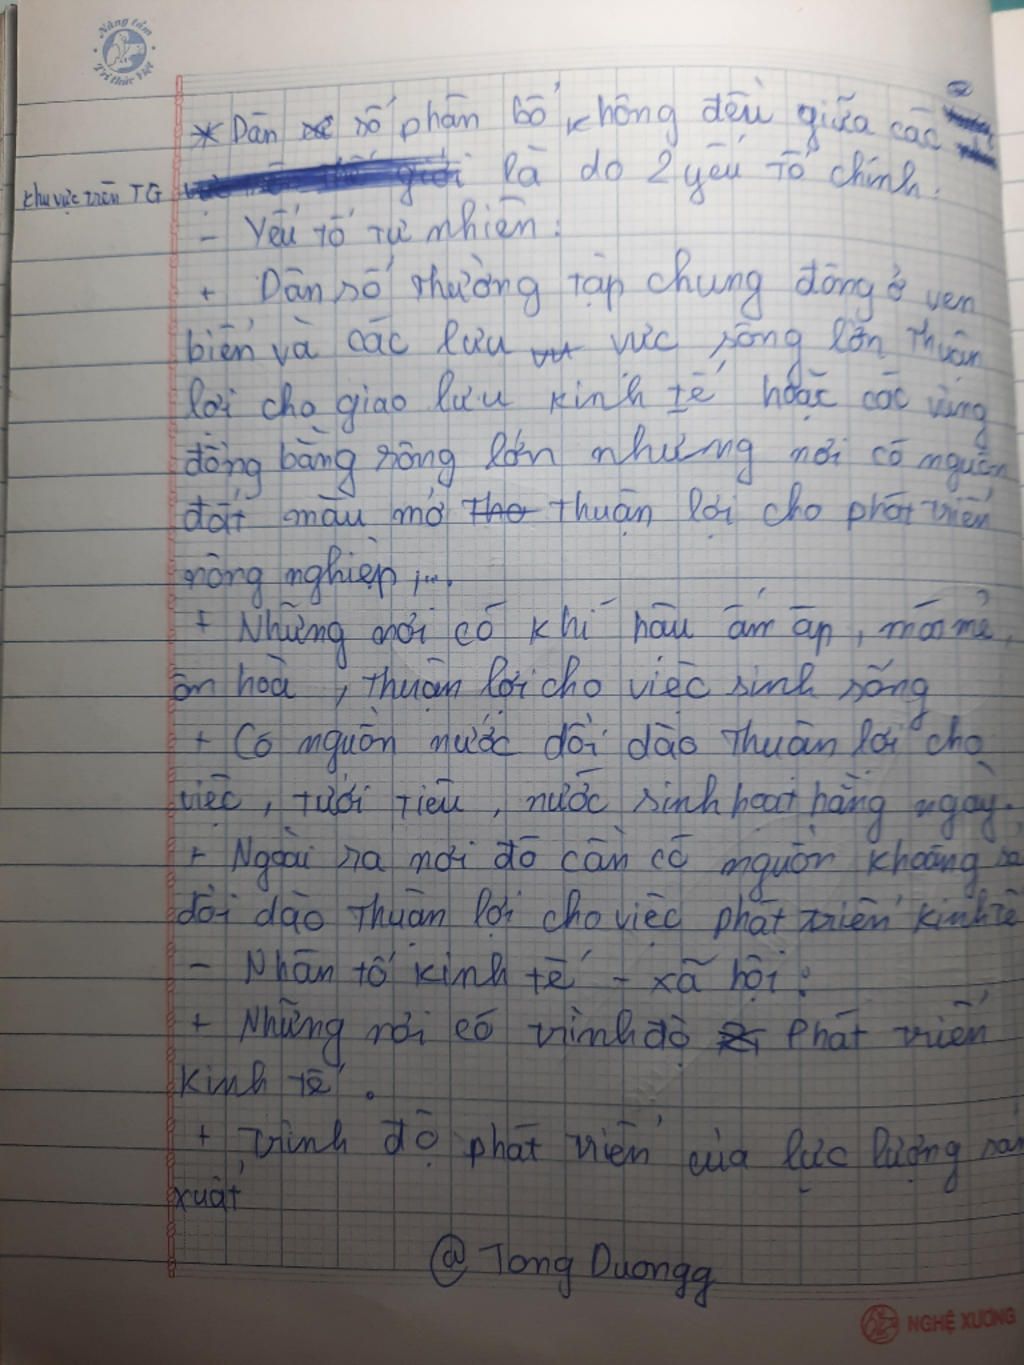 Nâng tầm
Trí thức Việt
* Dân số phân bố không đều giữa các
khu vực trên TG
là do 2 yếu tố chính.
- Yếu tố tự nhiên:
+ Dân số thường tập chung đông ở ven
biển và các lưu vực sông lớn thuận
lợi cho giao lưu kinh tế hoặc các vùng
đồng bằng sông lớn những nơi có nguồn
đất màu mỡ thuận lợi cho phát triển
nông nghiệp,...
+ Những nơi có khí hậu ấm áp, mát mẻ,
ôn hoà, thuận lợi cho việc sinh sống
+ Có nguồn nước dồi dào thuận lợi cho
việc, tưới tiêu, nước sinh hoạt hằng ngày.
+ Ngoài ra nơi đó cần có nguồn khoáng sả
dồi dào thuận lợi cho việc phát triển kinh tế
- Nhân tố kinh tế - xã hội:
+ Những nơi có trình độ phát triển
kinh tế.
+ trình độ phát triển của lực lượng sản
xuất
@ Tong Duongg
NGHỆ XƯƠNG